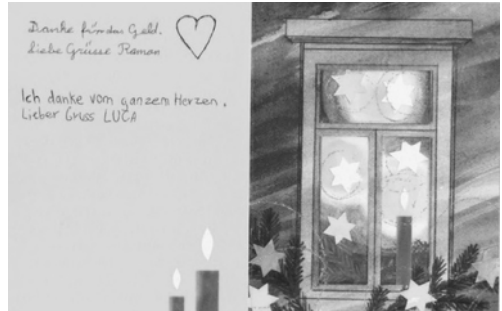 Danke für das Geld.
Liebe Grüsse Roman
Ich danke vom ganzem Herzen.
Lieber Gruss LUCA